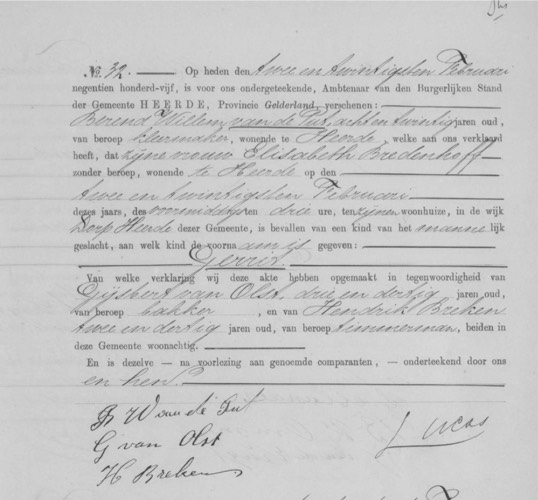 No. 32. Op heden den twee en twintigsten Februari
negentien honderd-vijf, is voor ons ondergeteekende, Ambtenaar van den Burgerlijken Stand
der Gemeente HEERDE, Provincie Gelderland, verschenen:
Berend Willem van de Put, acht en twintig jaren oud,
van beroep kleermaker, wonende te Heerde, welke aan ons verklaard
heeft, dat zijne vrouw Elisabeth Bredenhoff
zonder beroep, wonende te Heerde op den
twee en twintigsten Februari
dezes jaars, des voormiddags ten drie ure, ten zijnen woonhuize, in de wijk
Dorp Heerde dezer Gemeente, is bevallen van een kind van het mannelijk
geslacht, aan welk kind de voornaam is gegeven:
Gerrit.
Van welke verklaring wij deze akte hebben opgemaakt in tegenwoordigheid van
Gijsbert van Olst, drie en dertig jaren oud,
van beroep bakker, en van Hendrik Breken
twee en dertig jaren oud, van beroep timmerman, beiden in
deze Gemeente woonachtig.
En is dezelve — na voorlezing aan genoemde comparanten, — onderteekend door ons
en hen.
B W van de Put
G van Olst
Lucas
H Breken